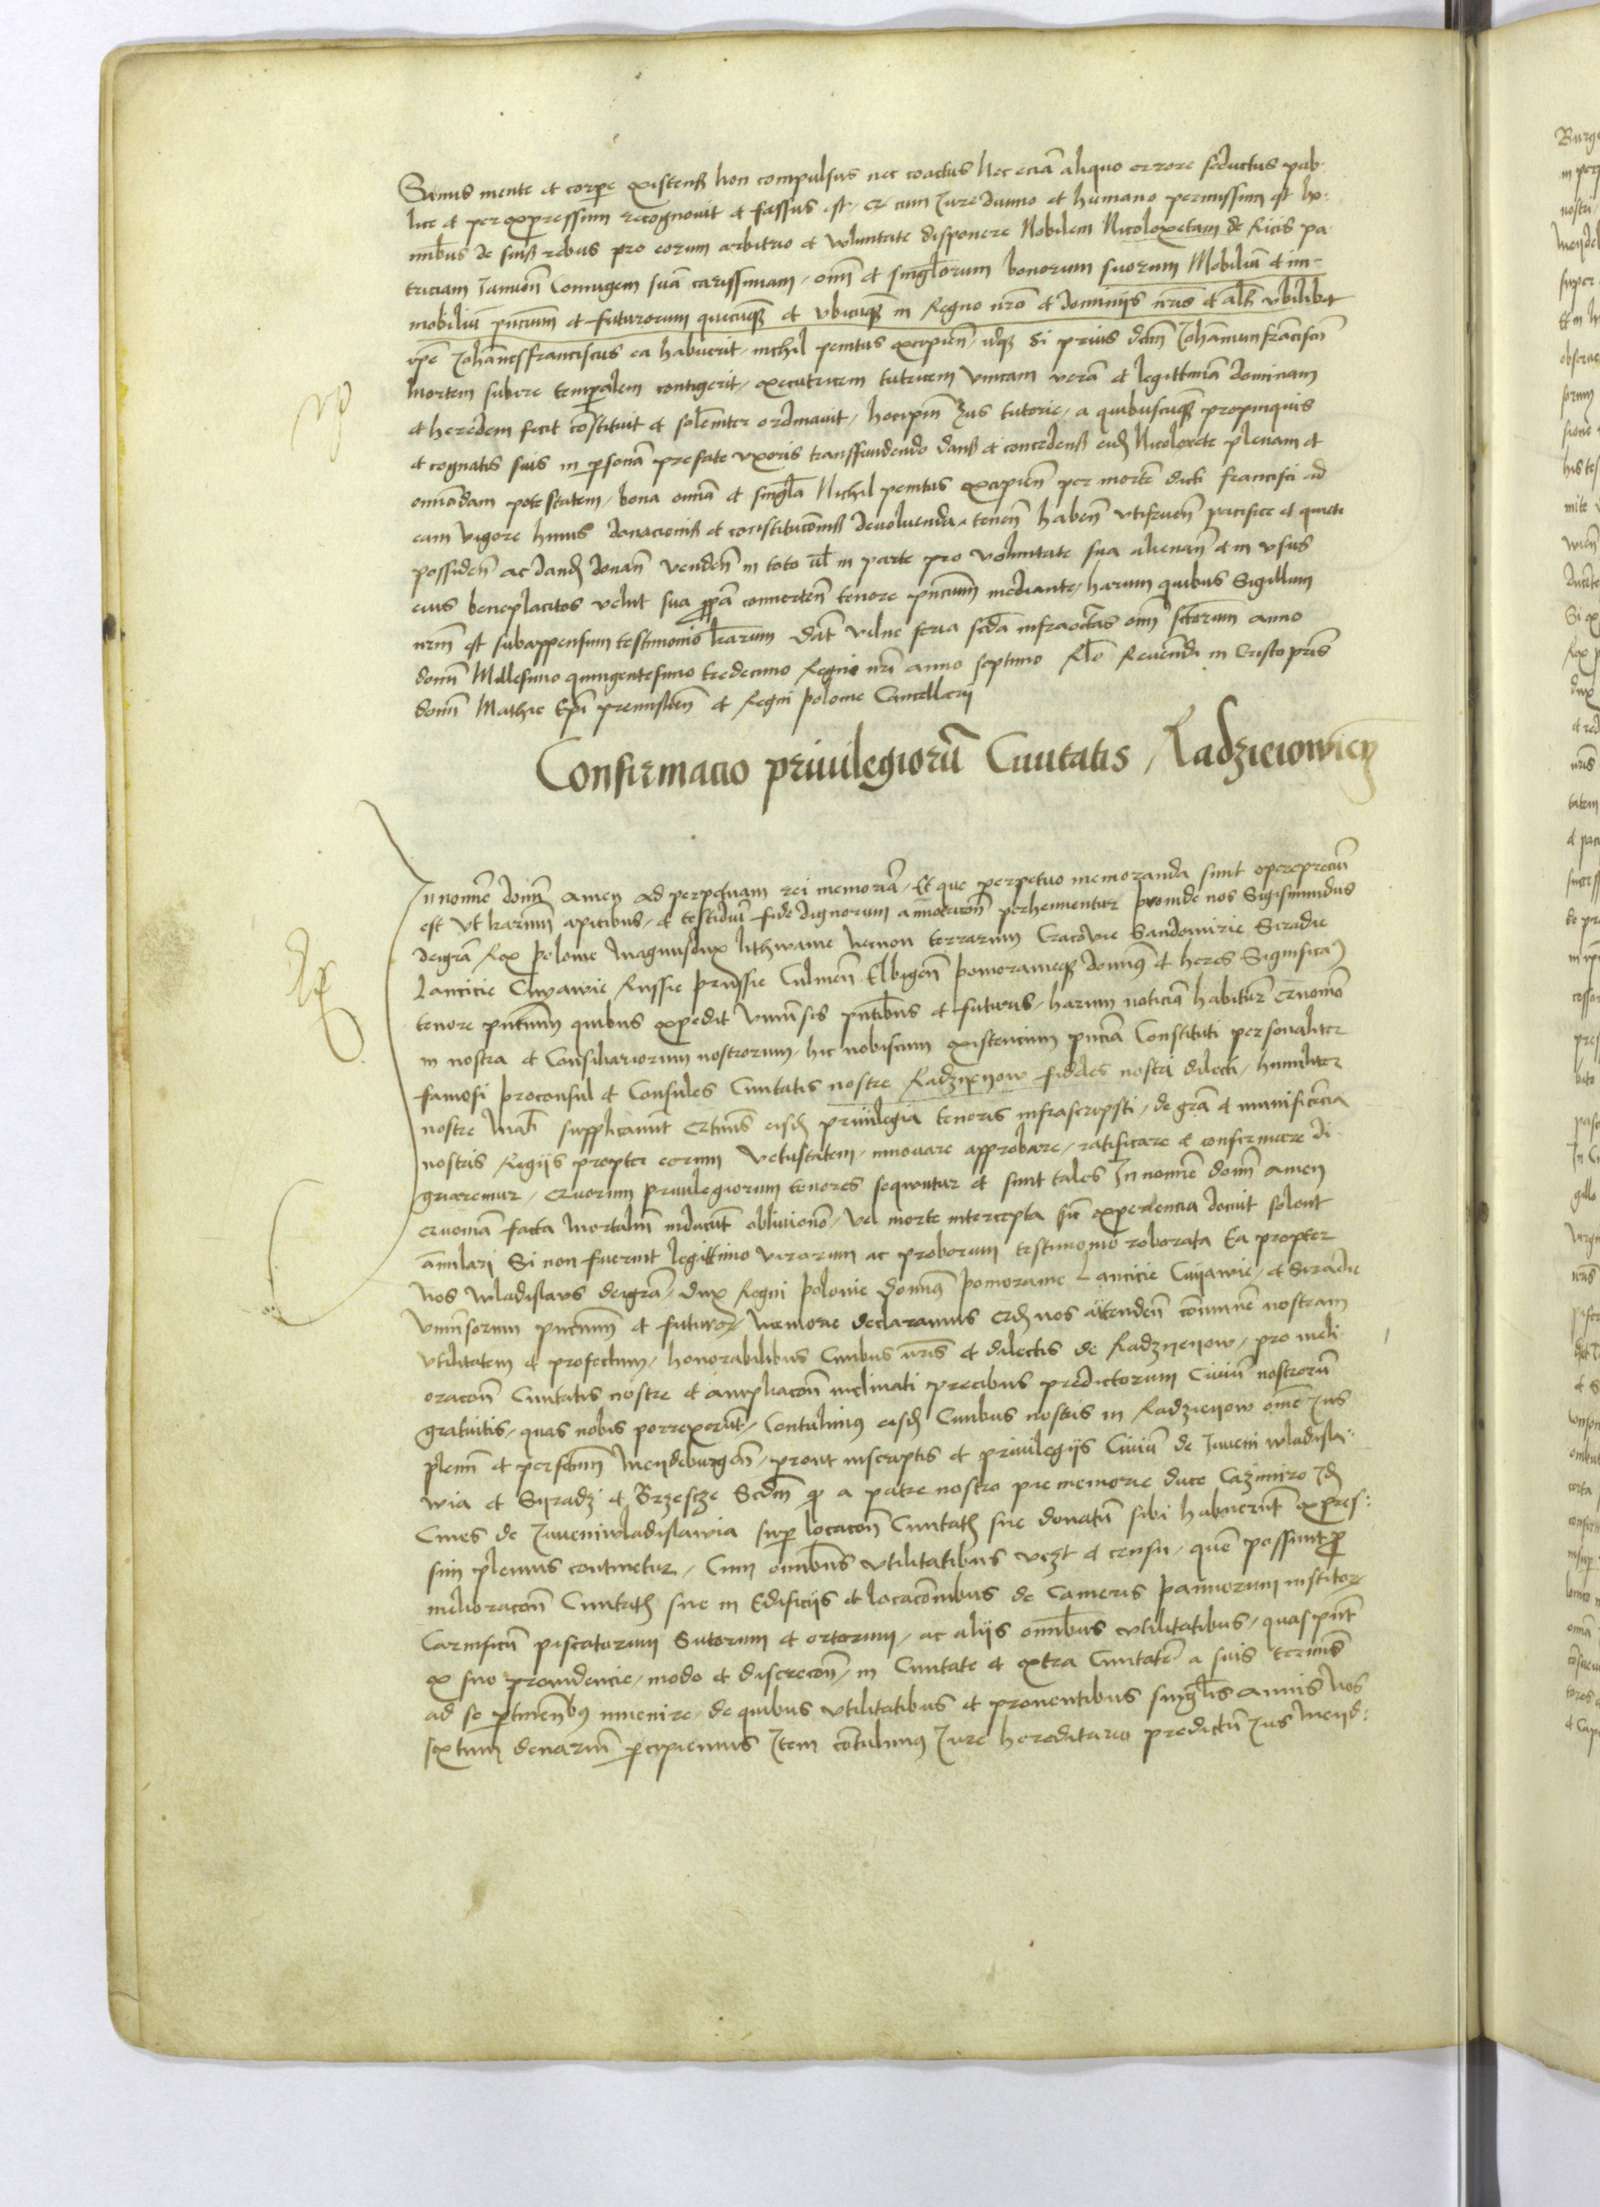 Sanus mente et corpe existens non compulsus nec coactus Nec eciã aliquo errore seductus pub-
lice et per expressum recognovit et fassus est, q cum Jure divino et humano permissum est ho-
minibus de suis rebus pro eorum arbitrio et voluntate disponere Nobilem Nicoloxetam de Ricis pa
triciam Januen̄ Coniugem suã carissimam, oīm et singlorum bonorum suorum Mobiliũ et im-
mobiliũ pn̄cium et futurorum quecūqȝ et vbicūqȝ in Regno nr̄o et dominijs nr̄is et al̄s vbilibet
ip̄e Johan̄esfranciscus ea habuerit, nichil penitus excipien̄, idqȝ Si prius dc̄m Johan̄emfrancīscū
mortem subire temp̄alem contigerit, executricem tutricem Vnicam verã et legittimã dominam
et heredem fecit cōstituit et solēniter ordinauit, hocip̄m Jus tutorie, a quibuscūqȝ propinquis
et cognatis suis in p̄sonã prefate vxoris transfundendo dans et concedens eid̄ Nicoloxete plenam et
om̄iodam potestatem, bona om̄ia et singl̄a Nichil penitus excipien̄ per mortē dicti francisci ad
eam vigore huius donacionis et constitucōnis deuoluenda, tenen̄ haben̄ vtifruen̄ pacifice et quiete
possiden̄ ac dand̄ donan̄ venden̄ in toto ul̄ in parte pro voluntate sua alienan̄ et in vsus
eius beneplacitos velut sua pp̄a conuerten̄ tenore pn̄cium mediante, harum quibus Sigillum
nr̄m est subappensum testimonio l̄rarum Dat̄ Vilne feria sc̄da infra octãs oīm sc̄torum anno
domī Millesimo quingentesimo tredecimo Regni nr̄i anno septimo Rl̄o Reuerend̄i in Cristo pr̄is
domī Mathie Epī premislien̄ et Regni Polonie Cancellarij
Confirmacio priuilegiorũ Ciuitatis Radzieiowien
In nomīe domī amen Ad perpetuam rei memoriã, Et que perpetuo memoranda sunt opereprecīũ
est Vt l̄rarum apicibus, et testiũ fide dignorum annotacōn̄ perhennentur Proinde nos Sigismundus
deigrã Rex Polonie Magnus dux lithwanie Necnon terrarum Cracovie Sandomirie Siradie
Lancicie Cuyawie Russie Prussie Culmen̄ Elbigen̄ Pomoranieqȝ domin9 et heres Significa
tenore pn̄tium quibus expedit Vniu̔sis pn̄tibus et futuris, harum noticiã habitur̄ Quomodo
in nostra et Consiliariorum nostrorum, hic nobiscum existencium pn̄cia Constituti personaliter
famosi Proconsul et Consules Ciuitatis nostre Radzyeyow fideles nostri dilecti, humiliter
nostre Mat̄i supplicauint Qtin̄s eisd̄ priuilegia tenoris infrascripsti, de grã et munificēcia
nostris Regijs propter eorum Vetustatem, innouare approbare, ratificare et confirmare di-
gnaremur, Quorum priuilegiorum tenores sequuntur et sunt tales In nomīe domī amen
Quoniã facta Mortaliũ inducũt obliuionē, vel morte intercepta sic experiencia docuit solent
ãnullari Si non fuerint legittimo virorum ac proborum testimonio roborata Ea propter
Nos Wladislaus deigrã, dux Regni Polonie domin9 Pomoranie Lancicie Cuyawie, et Siradie
Vniu̔sorum pn̄tium et futuroȝ memorie declaramus Qd̄ nos attenden̄ cōmunē nostram
vtilitatem et profectum, honorabilibus Ciuibus nr̄is et dilectis de Radzyeyow, pro meli-
oracōn̄ Ciuitatis nostre et ampliacōn̄ inclinati precibus predictorum Ciuiũ nostrorũ
gratuitis, quas nobis porrexerũt, Contulim9 eisd̄ Ciuibus nostris in Radzieyow om̄e Jus
plenũ et perfectum Meydeburgen̄, prout in scriptis et priuilegijs Ciuiũ de Juueniwladisla-
wia et Syradz et Brzescze Sc̄dm qd̄ a patre nostro pie memorie duce Cazimiro Jd̄
Ciues de Juueniwladislawia sup̄ locacōn̄ Ciuitat̄ sue donatũ sibi habuerũt expres-
sius plenius continetur, Cum omībus vtilitatibus vcȝt et censu, quē possunt p
melioracōn̄ Ciuitat̄ sue in Edificijs et locacōnibus de Cameris Pannorum institoȝ
Carnificũ piscatorum Sutorum et ortorum, ac alijs omībus vtilitatibus, quas pn̄t
ex sue prouidencie, modo et discrecōn̄, in Ciuitate et extra Ciuitatē a suis terminis
ad se p̄tinen̄b9 inuenire, de quibus vtilitatibus et prouentibus singl̄is annis Nos
sextum denariũ p̄cipiemus Item cōtulim9 Jure hereditario predictũ Jus Meyd-